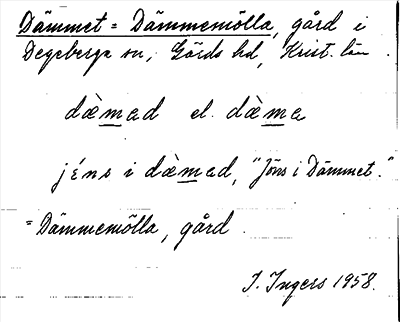 Dämmet = Dämmemölla, gård i
Degeberga sn, Gärds hd, Krist. län.
dæ̀mad el. dæ̀ma
jéns i dæ̀mad, "Jöns i Dämmet."
= Dämmemölla, gård.
I. Ingers 1958.